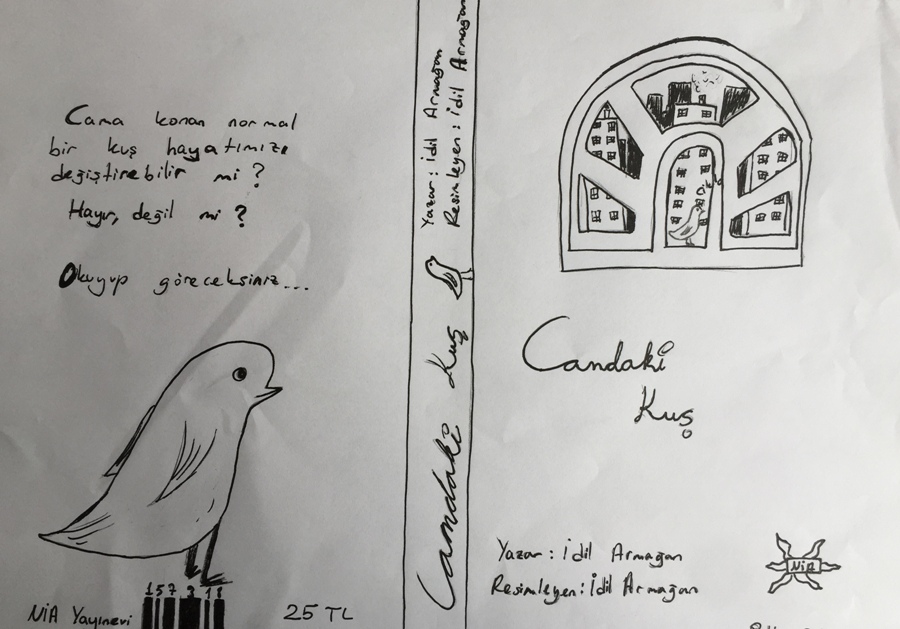 Cama konan normal
bir kuş hayatımızı
değiştirebilir mi?
Hayır, değil mi?
Okuyup göreceksiniz...
157 3 18
NİA Yayınevi
25 TL
Yazar: İdil Armağan
Resimleyen: İdil Armağan
Camdaki Kuş
Camdaki
Kuş
Yazar: İdil Armağan
Resimleyen: İdil Armağan
NİA